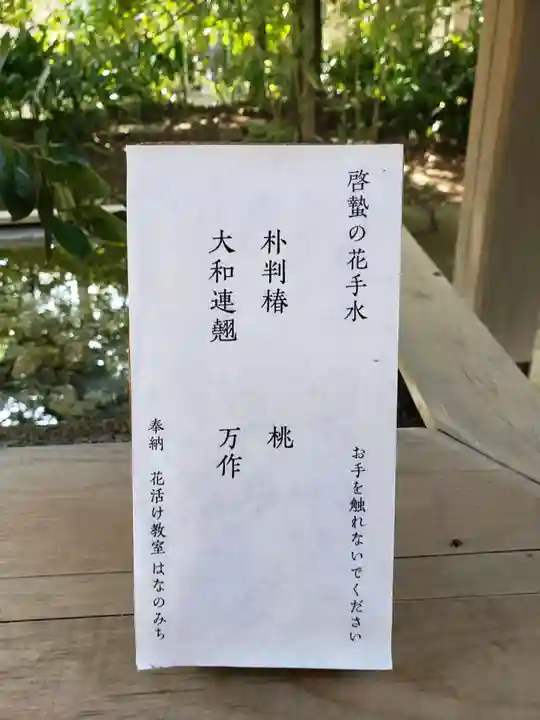 啓蟄の花手水
お手を触れないでください
朴判椿　桃
大和連翹　万作
奉納　花活け教室 はなのみち